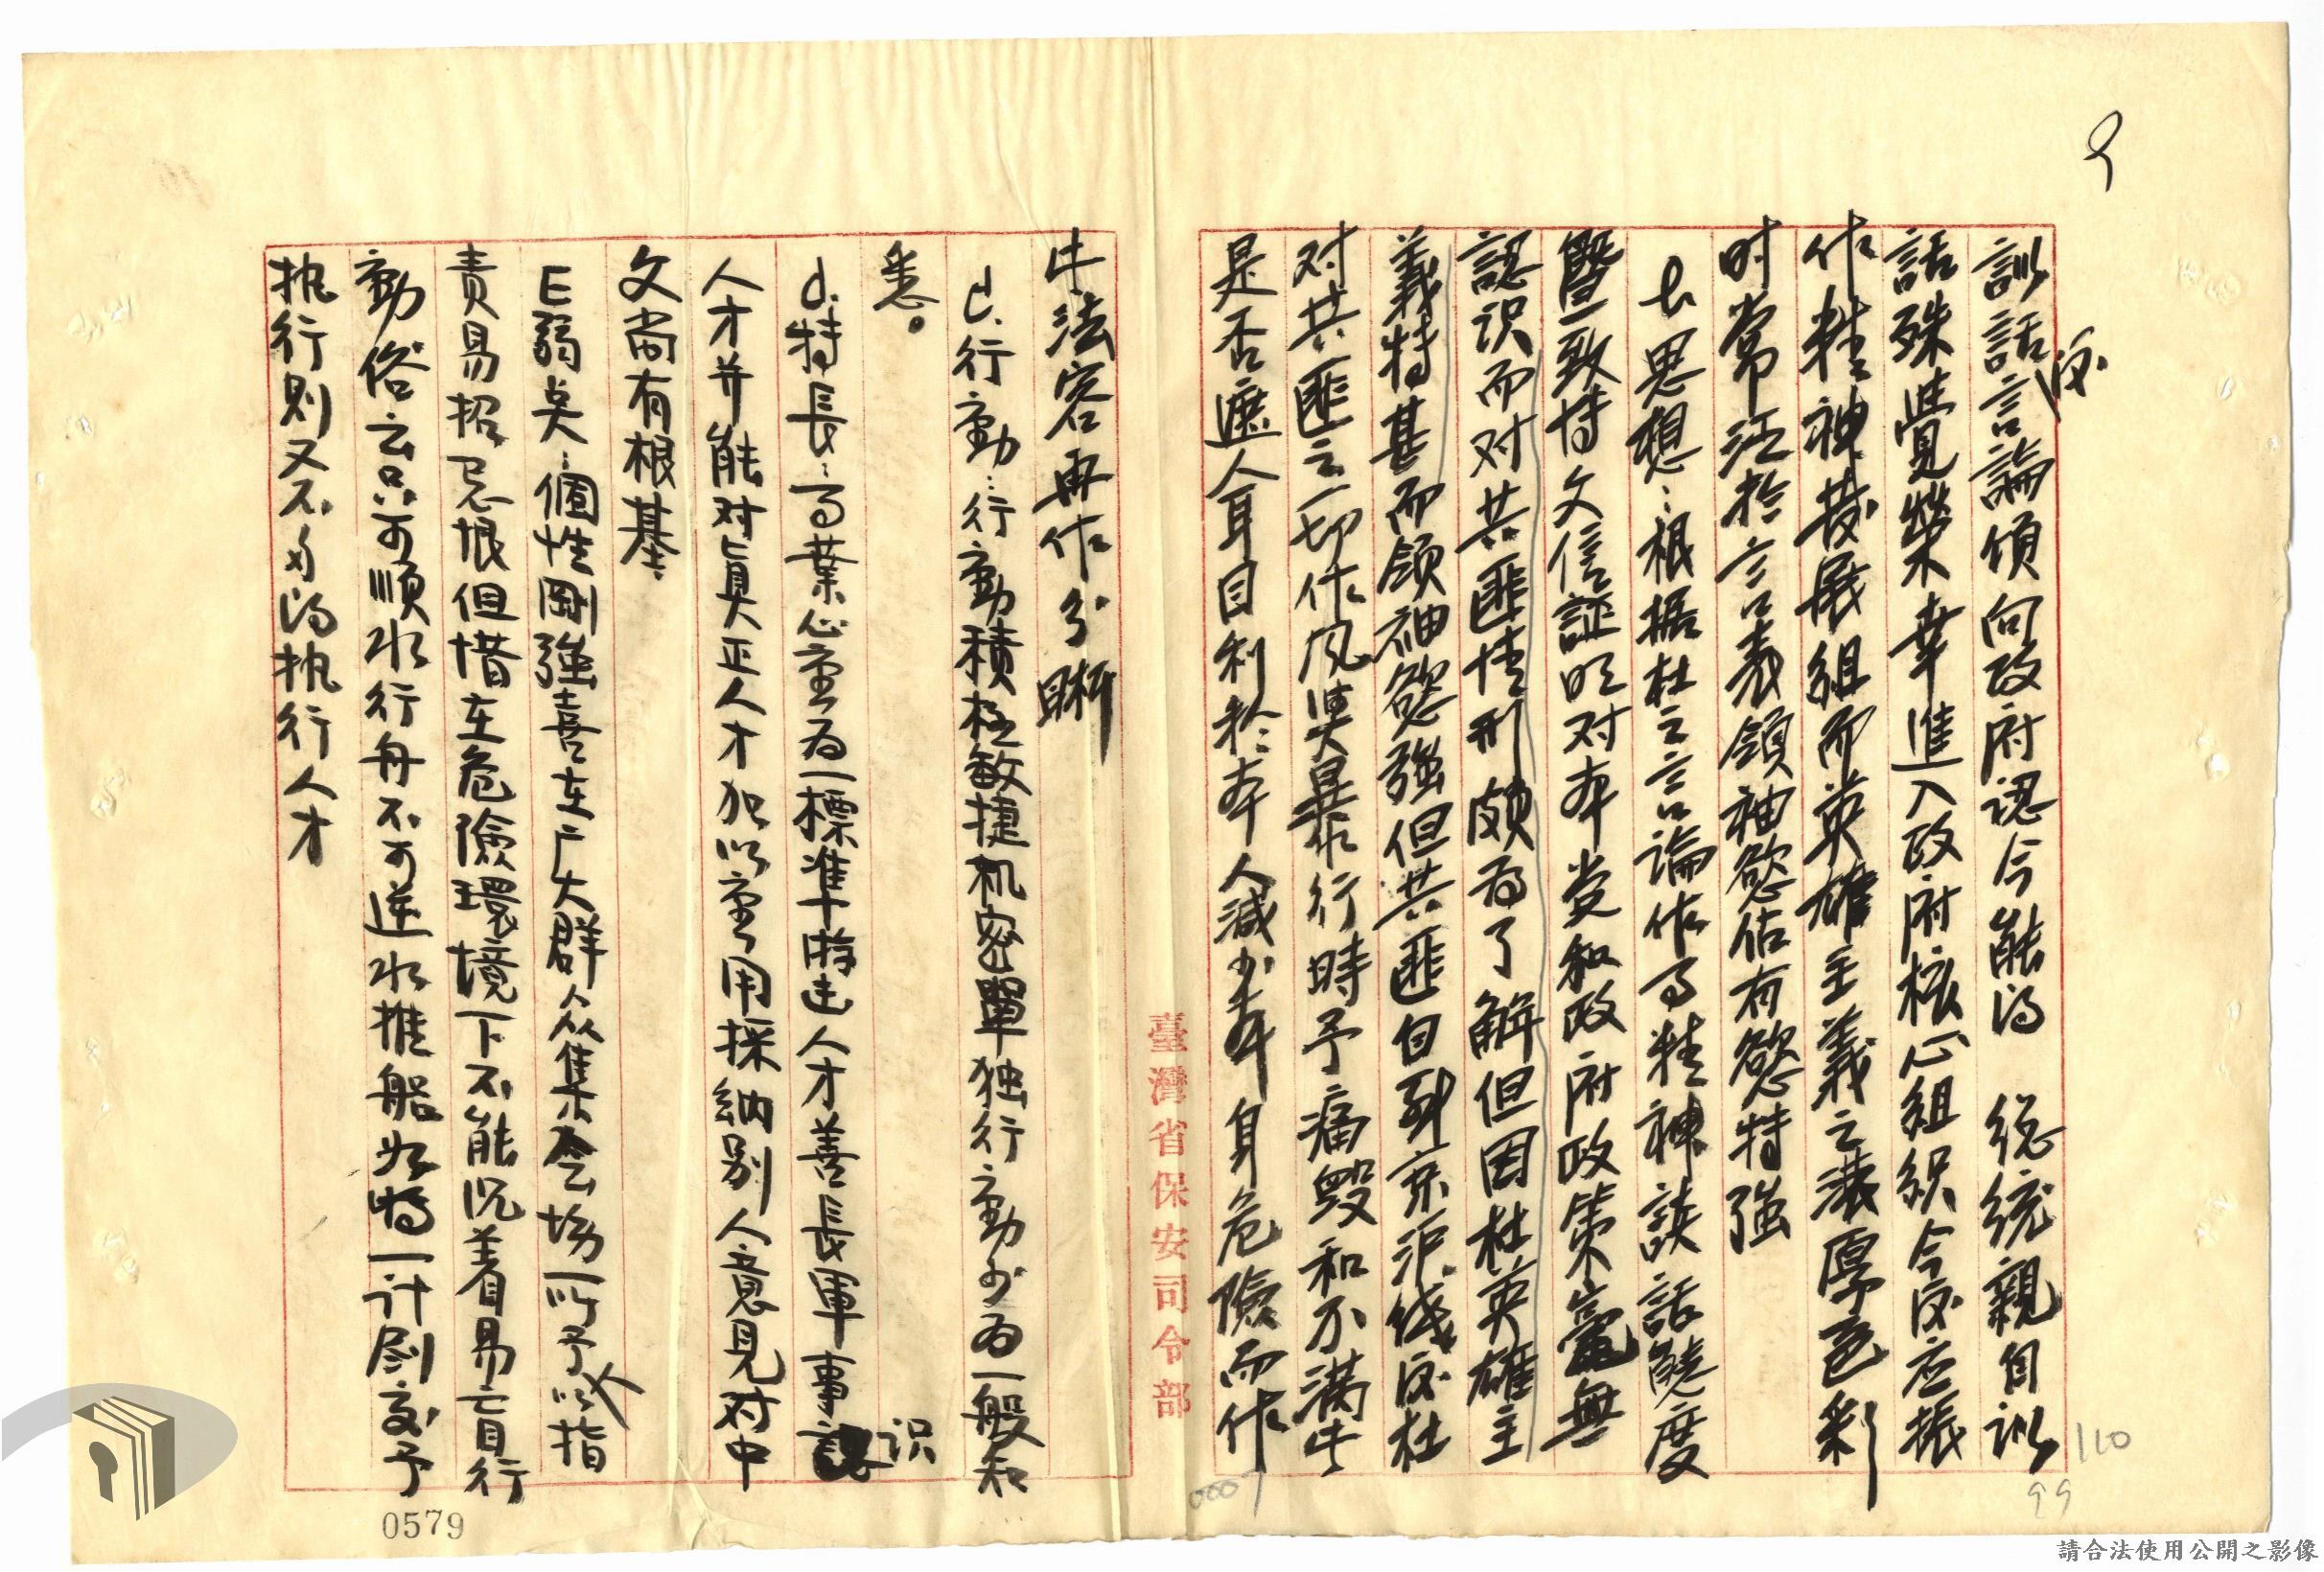 9
訓話後言論傾向政府認今能得 總統親自訓
話殊覺榮幸進入政府核心組織今後應振
作精神發展組而英雄主義之濃厚色彩
时常流於言表領袖慾佔有慾特強
b思想：根据杜之言論作为精神談話態度
暨一致特文信証明对本党和政府政策毫無
認识而对共匪情形頗为了解但因杜英雄主
義特甚而領袖慾強但共匪自到京沪後杜
对共匪之一切作风與暴行時予痛毀和不满牛
是否遮人耳目利於本人減少本身危險而作
牛法容再作分晰
C.行動：行動積極敏捷机密單独行動少为一般知
悉。
d.特長：事業心重为一標準游击人才善長軍事识
人才并能对真正人才加以重用採納別人意見对中
文尚有根基.
E弱点：個性剛強喜在广大群众集会場所予以人指
責易招忌恨但惜在危險環境下不能沉着易盲行
動俗云只可順水行舟不可逆水推船如將一計劃交予
执行則又不失为执行人才
臺灣省保安司令部
0007
110
99
0579
請合法使用公開之影像